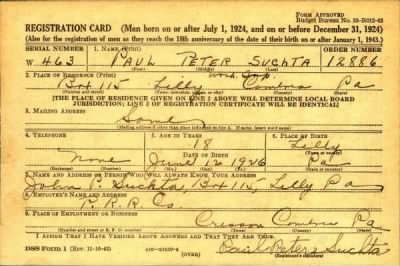 FORM APPROVED
REGISTRATION CARD—(Men born on or after July 1, 1924, and on or before December 31, 1924)
(Also for the registration of men as they reach the 18th anniversary of the date of their birth on or after January 1, 1943.)
SERIAL NUMBER 1. NAME (Print) ORDER NUMBER
W 463 PAUL PETER SUCHTA 12886
(First) (Middle) (Last)
2. PLACE OF RESIDENCE (Print)
Box 115 Lilly Cambria Pa
[THE PLACE OF RESIDENCE GIVEN ON LINE 2 ABOVE WILL DETERMINE LOCAL BOARD
JURISDICTION; LINE 2 OF REGISTRATION CERTIFICATE WILL BE IDENTICAL]
3. MAILING ADDRESS
Same
4. TELEPHONE 5. AGE IN YEARS 6. PLACE OF BIRTH
18 Lilly
DATE OF BIRTH
None June 12 1926 Pa
7. NAME AND ADDRESS OF PERSON WHO WILL ALWAYS KNOW YOUR ADDRESS
John P Suchta, Box 115, Lilly Pa
8. EMPLOYER'S NAME AND ADDRESS
P. R. R. Co.
9. PLACE OF EMPLOYMENT OR BUSINESS
Cresson Cambria Pa
I AFFIRM THAT I HAVE VERIFIED ABOVE ANSWERS AND THAT THEY ARE TRUE.
DSS Form 1 (OVER) Paul Peter Suchta